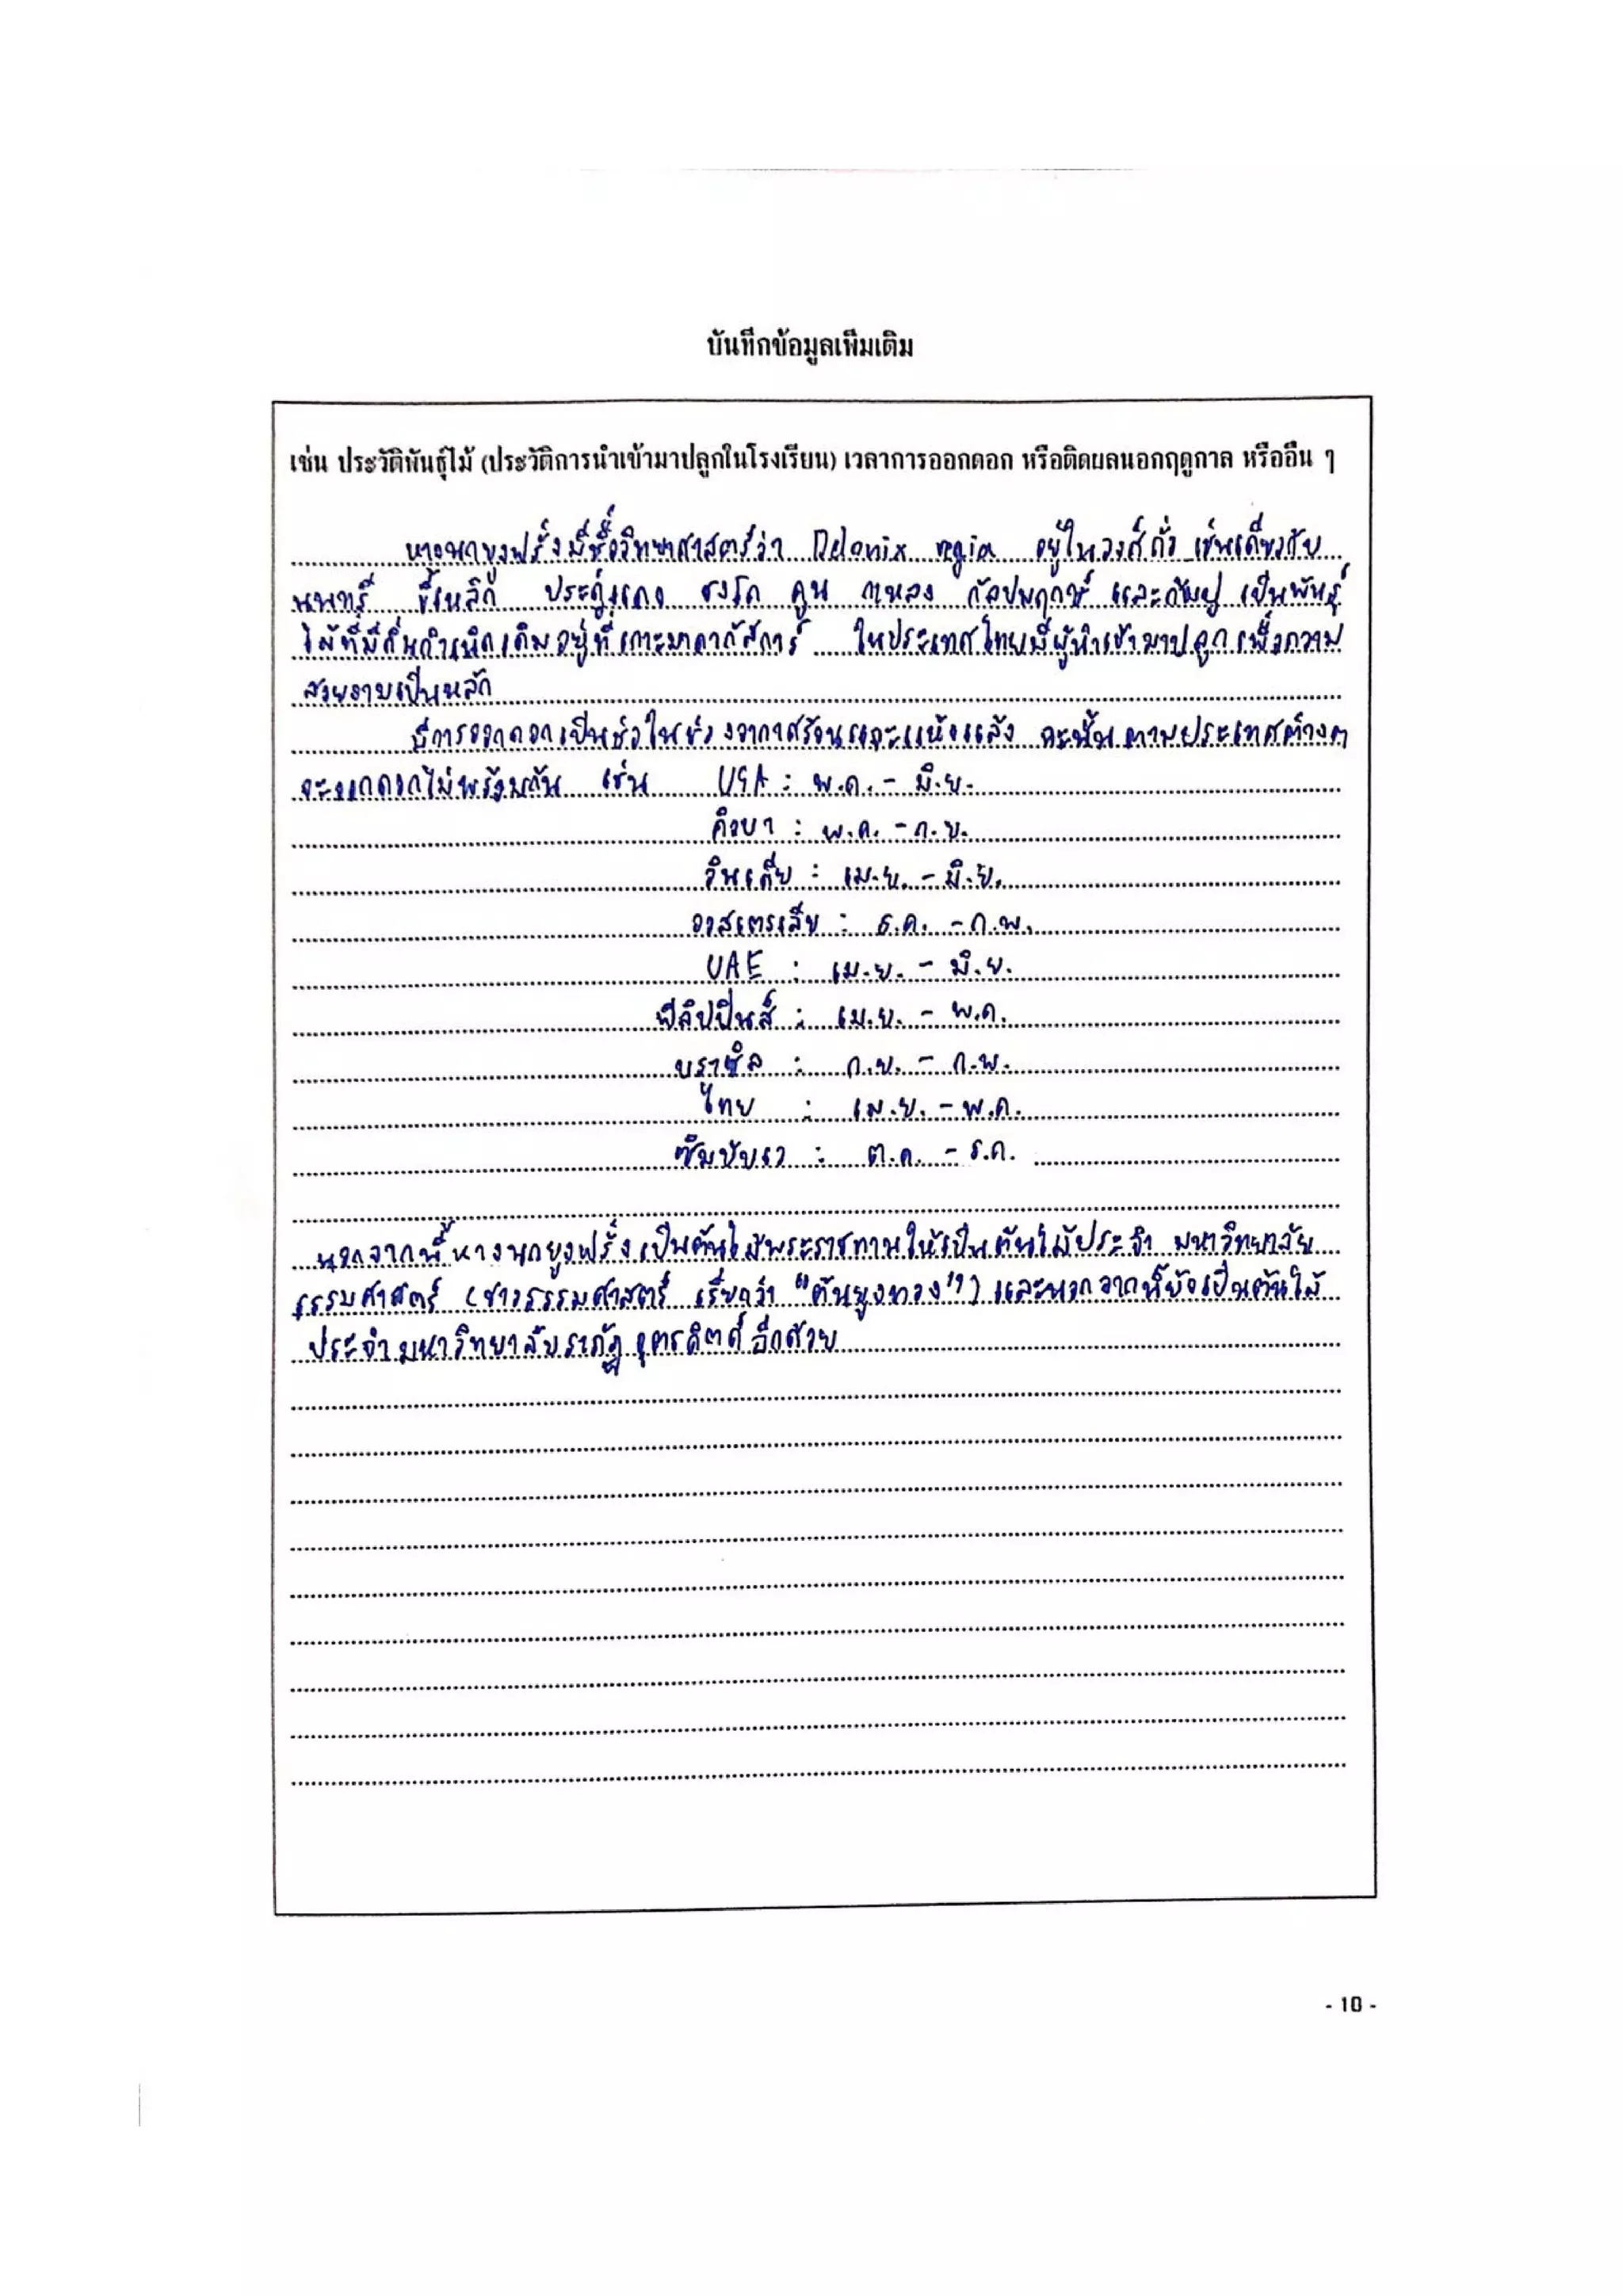 บันทึกข้อมูลเพิ่มเติม
เช่น ประวัติพันธุ์ไม้ (ประวัติการนำเข้ามาปลูกในโรงเรียน) เวลาการออกดอก หรือติดผลนอกฤดูกาล หรืออื่น ๆ
หางนกยูงฝรั่งมีชื่อวิทยาศาสตร์ว่า Delonix regia อยู่ในวงศ์ถั่ว เช่นเดียวกับ
นนทรี ขี้เหล็ก ประดู่แดง ชงโค คูน กาหลง กัลปพฤกษ์ และถัมภู เป็นพันธุ์
ไม้ที่มีถิ่นกำเนิดเดิมอยู่ที่เกาะมาดากัสการ์ ในประเทศไทยมีผู้นำเข้ามาปลูกเพื่อความ
สวยงามเป็นหลัก
มีการออกดอกเป็นช่อในช่วงอากาศร้อนและแห้งแล้ง ฉะนั้นตามประเทศต่างๆ
จะออกดอกไม่พร้อมกัน เช่น USA : พ.ค. - มิ.ย.
คิวบา : พ.ค. - ก.ย.
อินเดีย : เม.ย. - มิ.ย.
ออสเตรเลีย : ธ.ค. - ก.พ.
UAE : เม.ย. - มิ.ย.
ฟิลิปปินส์ : เม.ย. - พ.ค.
บราซิล : ก.ย. - ก.พ.
ไทย : เม.ย. - พ.ค.
ซิมบับเว : ต.ค. - ธ.ค.
นอกจากนี้หางนกยูงฝรั่งเป็นต้นไม้พระราชทานให้เป็นต้นไม้ประจำ มหาวิทยาลัย
ธรรมศาสตร์ (ชาวธรรมศาสตร์ เรียกว่า "ต้นยูงทอง") และนอกจากนี้ยังเป็นต้นไม้
ประจำมหาวิทยาลัยราภัฏ อุตรดิตถ์ อีกด้วย
- 10 -